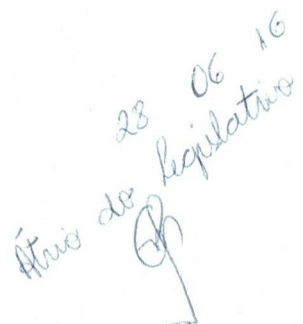 28 06 16
Átrio do Legislativo